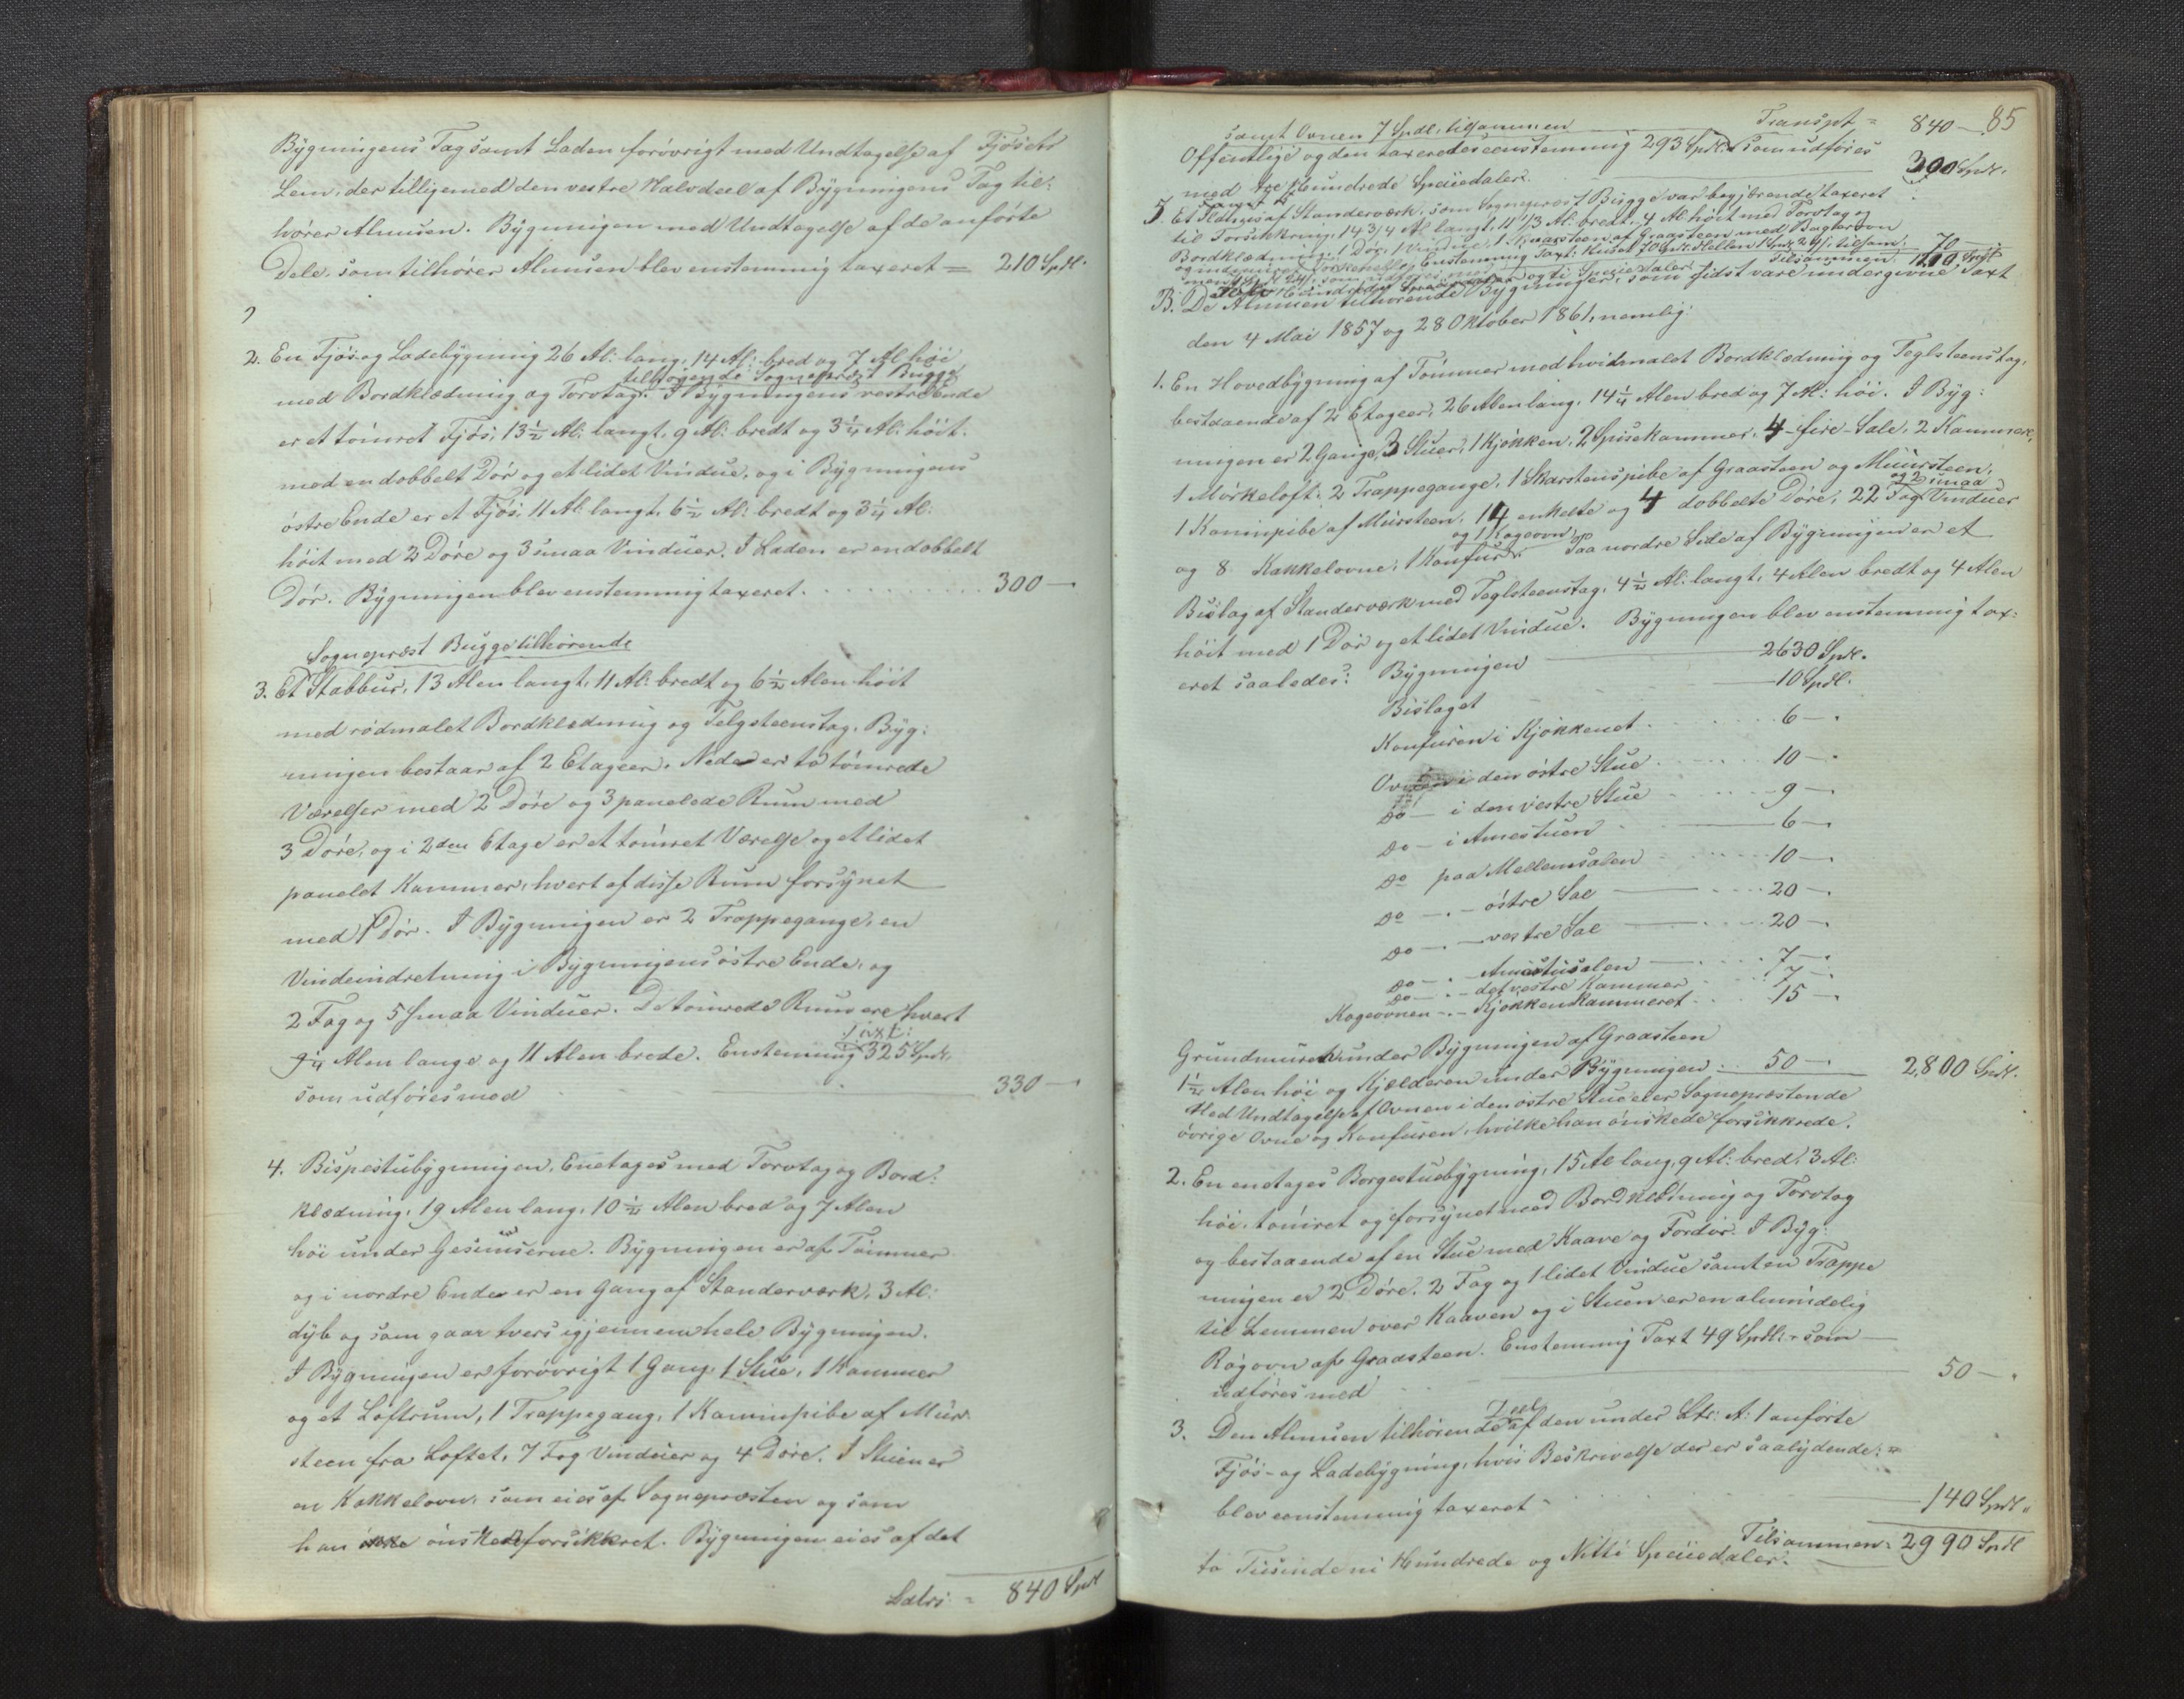 Bygningens Tag samt Laden forøvrigt med Undtagelse af Fjøsets
Lem, der tilligemed den vestre Halvdeel af Bygningens Tag til-
hører Almuen. Bygningen med Undtagelse af de anførte
Dele, som tilhører Almuen blev enstemmig taxeret = 210 Spdl.
2. En Fjøs og Ladebygning 26 Al: lang, 14 Al: bred og 7 Al høi
tilhørende Sognepræst Bugge
med Bordklædning og Torvtag. I Bygningens vestre Ende
er et tømret Fjøs, 13½ Al: langt, 9 Al: bredt og 3¼ Al: høit.
med en dobbelt Dør og et lidet Vindue, og i Bygningens
østre Ende er et Fjøs, 11 Al: langt, 6½ Al: bredt og 3¼ Al:
høit med 2 Døre og 3 smaa Vinduer. I Laden er en dobbelt
Dør. Bygningen blev enstemmig taxeret. 300 —
Sognepræst Bugge tilhørende
3. Et Stabbur, 13 Alen langt, 11 Al: bredt og 6½ Alen høit
med rødmalet Bordklædning og Telgsteenstag. Byg:
ningen bestaar af 2 Etager. Nede er to tømrede
Værelser med 2 Døre og 3 panelede Rum med
3 Døre, og i 2den Etage er et tømret Værelse og et lidet
panelet Kammer, hvert af disse Rum forsynet
med 1 Dør. I Bygningen er 2 Trappegange, en
Vindeindretning i Bygningens østre Ende, og
2 Fag og 5 smaa Vinduer. De tømrede Rum ere hvert
9¼ Alen lange og 11 Alen brede. Enstemmig Taxt: 325 Spdl.
som udføres med 330 —
4. Bispestubygningen, Enetages med Torvtag og Bord:
klædning, 19 Alen lang, 10½ Alen bred og 7 Alen
høi under Gesimserne. Bygningen er af Tømmer
og i nordre Ende er en Gang af Standerværk, 3 Al:
dyb og som gaar tvers igjennem hele Bygningen.
I Bygningen er forøvrigt 1 Gang, 1 Stue, 1 Kammer
og et Loftrum, 1 Trappegang, 1 Kaminpibe af Mur-
steen fra Loftet, 7 Fag Vinduer og 4 Døre. I Stuen er
en Kakkelovn, som eies af Sognepræsten og som
han ikke ønsker forsikkret. Bygningen eies af det
Lateri = 840 Spdl
85
Transpt = 840 —
samt Ovnen 7 Spdl, tilsammen
Offentlige og den taxeredes eenstemmig 293 Spdl. som udføres
med tre Hundrede Speciedaler. 300 Spdl.
5. Et Ildhus af Standerværk, som Sognepræst Bugge var begjærende taxeret
til Forsikkring, 14 3/4 Al. langt, 11 1/3 Al. bredt, 4 Al: høit med Torvtag og
Bordklædning, 1 Dør, 1 Vindue, 1 Skorsteen af Graasteen med Bagerovn
Enstemmig Taxt: Huset 70 Spdl. Hellen 1 Spdl. 24 s, tilsam. 70 —
Tilsammen
B. De Almuen tilhørende Bygninger, som sidst vare undergivne Taxt
den 4 Mai 1857 og 28 Oktober 1861, nemlig:
1. En Hovedbygning af Tømmer med hvidmalet Bordklædning og Teglsteenstag,
bestaaende af 2 Etager, 26 Alen lang, 14¼ Alen bred og 7 Al: høi. I Byg:
ningen er 2 Gange, 3 Stuer, 1 Kjøkken, 2 Spisekammer, 4 - fire - Sale, 2 Kammere,
1 Mørkeloft, 2 Trappegange, 1 Skorstenspibe af Graasteen og Muursteen,
og 2 smaa
1 Kaminpibe af Mursteen, 14 enkelte og 4 dobbelte Døre, 22 Fag Vinduer
og 1 Kogeovn
og 8 Kakkelovne, 1 Komfur. Paa nordre Side af Bygningen er et
Bislag af Standerværk med Teglsteenstag, 4½ Al: langt, 4 Alen bredt og 4 Alen
høit med 1 Dør og et lidet Vindue. Bygningen blev enstemmig tax:
eret saaledes: Bygningen 2630 Spdl.
Bislaget 10 Spdl.
Komfuren i Kjøkkenet 6 —
Ovnen i den østre Stue 10 —
Do — i den vestre Stue 9 —
Do — i Amestuen 6 —
Do paa Mellemsalen 10 —
Do — østre Sal 20 —
Do — vestre Sal 20 —
Do — Amestusalen 7 —
Do — det vestre Kammer 7 —
Kogeovnen — Kjøkkenkammeret 15 —
Grundmuren under Bygningen af Graasteen
1½ Alen høi og Kjælderen under Bygningen 50 — 2,800 Spdl.
Med Undtagelse af Ovnen i den østre Stue eier Sognepræsten de
øvrige Ovne og Komfuren, hvilke han ønskede forsikkrede.
2. En enetages Borgestuebygning, 15 Al lang, 9 Al: bred, 3 Al:
høi, tømret og forsynet med Bordklædning og Torvtag
og bestaaende af en Stue med Kaave og Fordør. I Byg:
ningen er 2 Døre, 2 Fag og 1 lidet Vindue samt en Trappe
til Lemmen over Kaaven og i Stuen er en almindelig
Røgovn af Graasteen. Enstemmig Taxt 49 Spdlr. som
udføres med 50 —
3. Den Almuen tilhørende Deel af den under Litr: A: 1 anførte
Fjøs- og Ladebygning, hvis Beskrivelse der er saalydende: =
blev eenstemmig taxeret 140 Spdl "
Tilsammen = 2990 Spdl
to Tusinde ni Hundrede og Nitti Speciedaler.